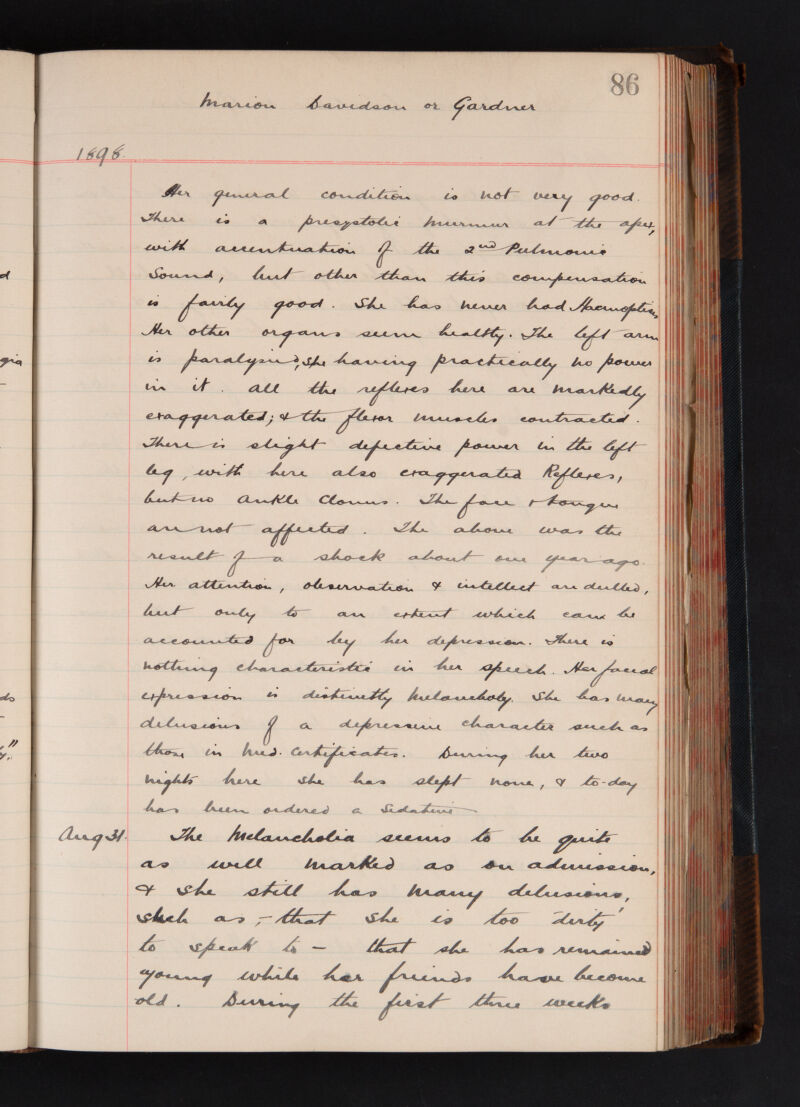 86
Marion Davidson or Gardner
1898.
Her general condition is not very good.
There is a presystolic murmur at the apex,
with accentuation of the 2nd Pulmonic
Sound, but other than this compensation
is fairly good. She has never had Haemoptysis
Her other organs seem healthy. The left arm
is paralysed, she having practically no power
in it. All the reflexes here are markedly
exaggerated; & the flexor muscles contracted.
There is slight defective power in the left
leg, with here also exaggerated Reflexes,
but no Ankle Clonus. The face & tongue
are not affected. The above was the
result of a shock about one year ago.
Her attention, observation & intellect are dulled,
but only to an extent which can be
accounted for by her depression. There is
nothing characteristic in her speech. Her facial
expression is distinctly Melancholy. She has many
delusions of a depressive character such as
those in Med. Certificates. During her two
nights here she has slept none, & to-day
has been ordered a Sedative
Aug 31. The Melancholia seems to be quite
as well marked as on admission,
& she still has many delusions,
such as,- that she is too 'dirty'
to speak to - that she has remained
young while her friends have become
old. During the first three weeks
d
gia
-
ds
-
y."